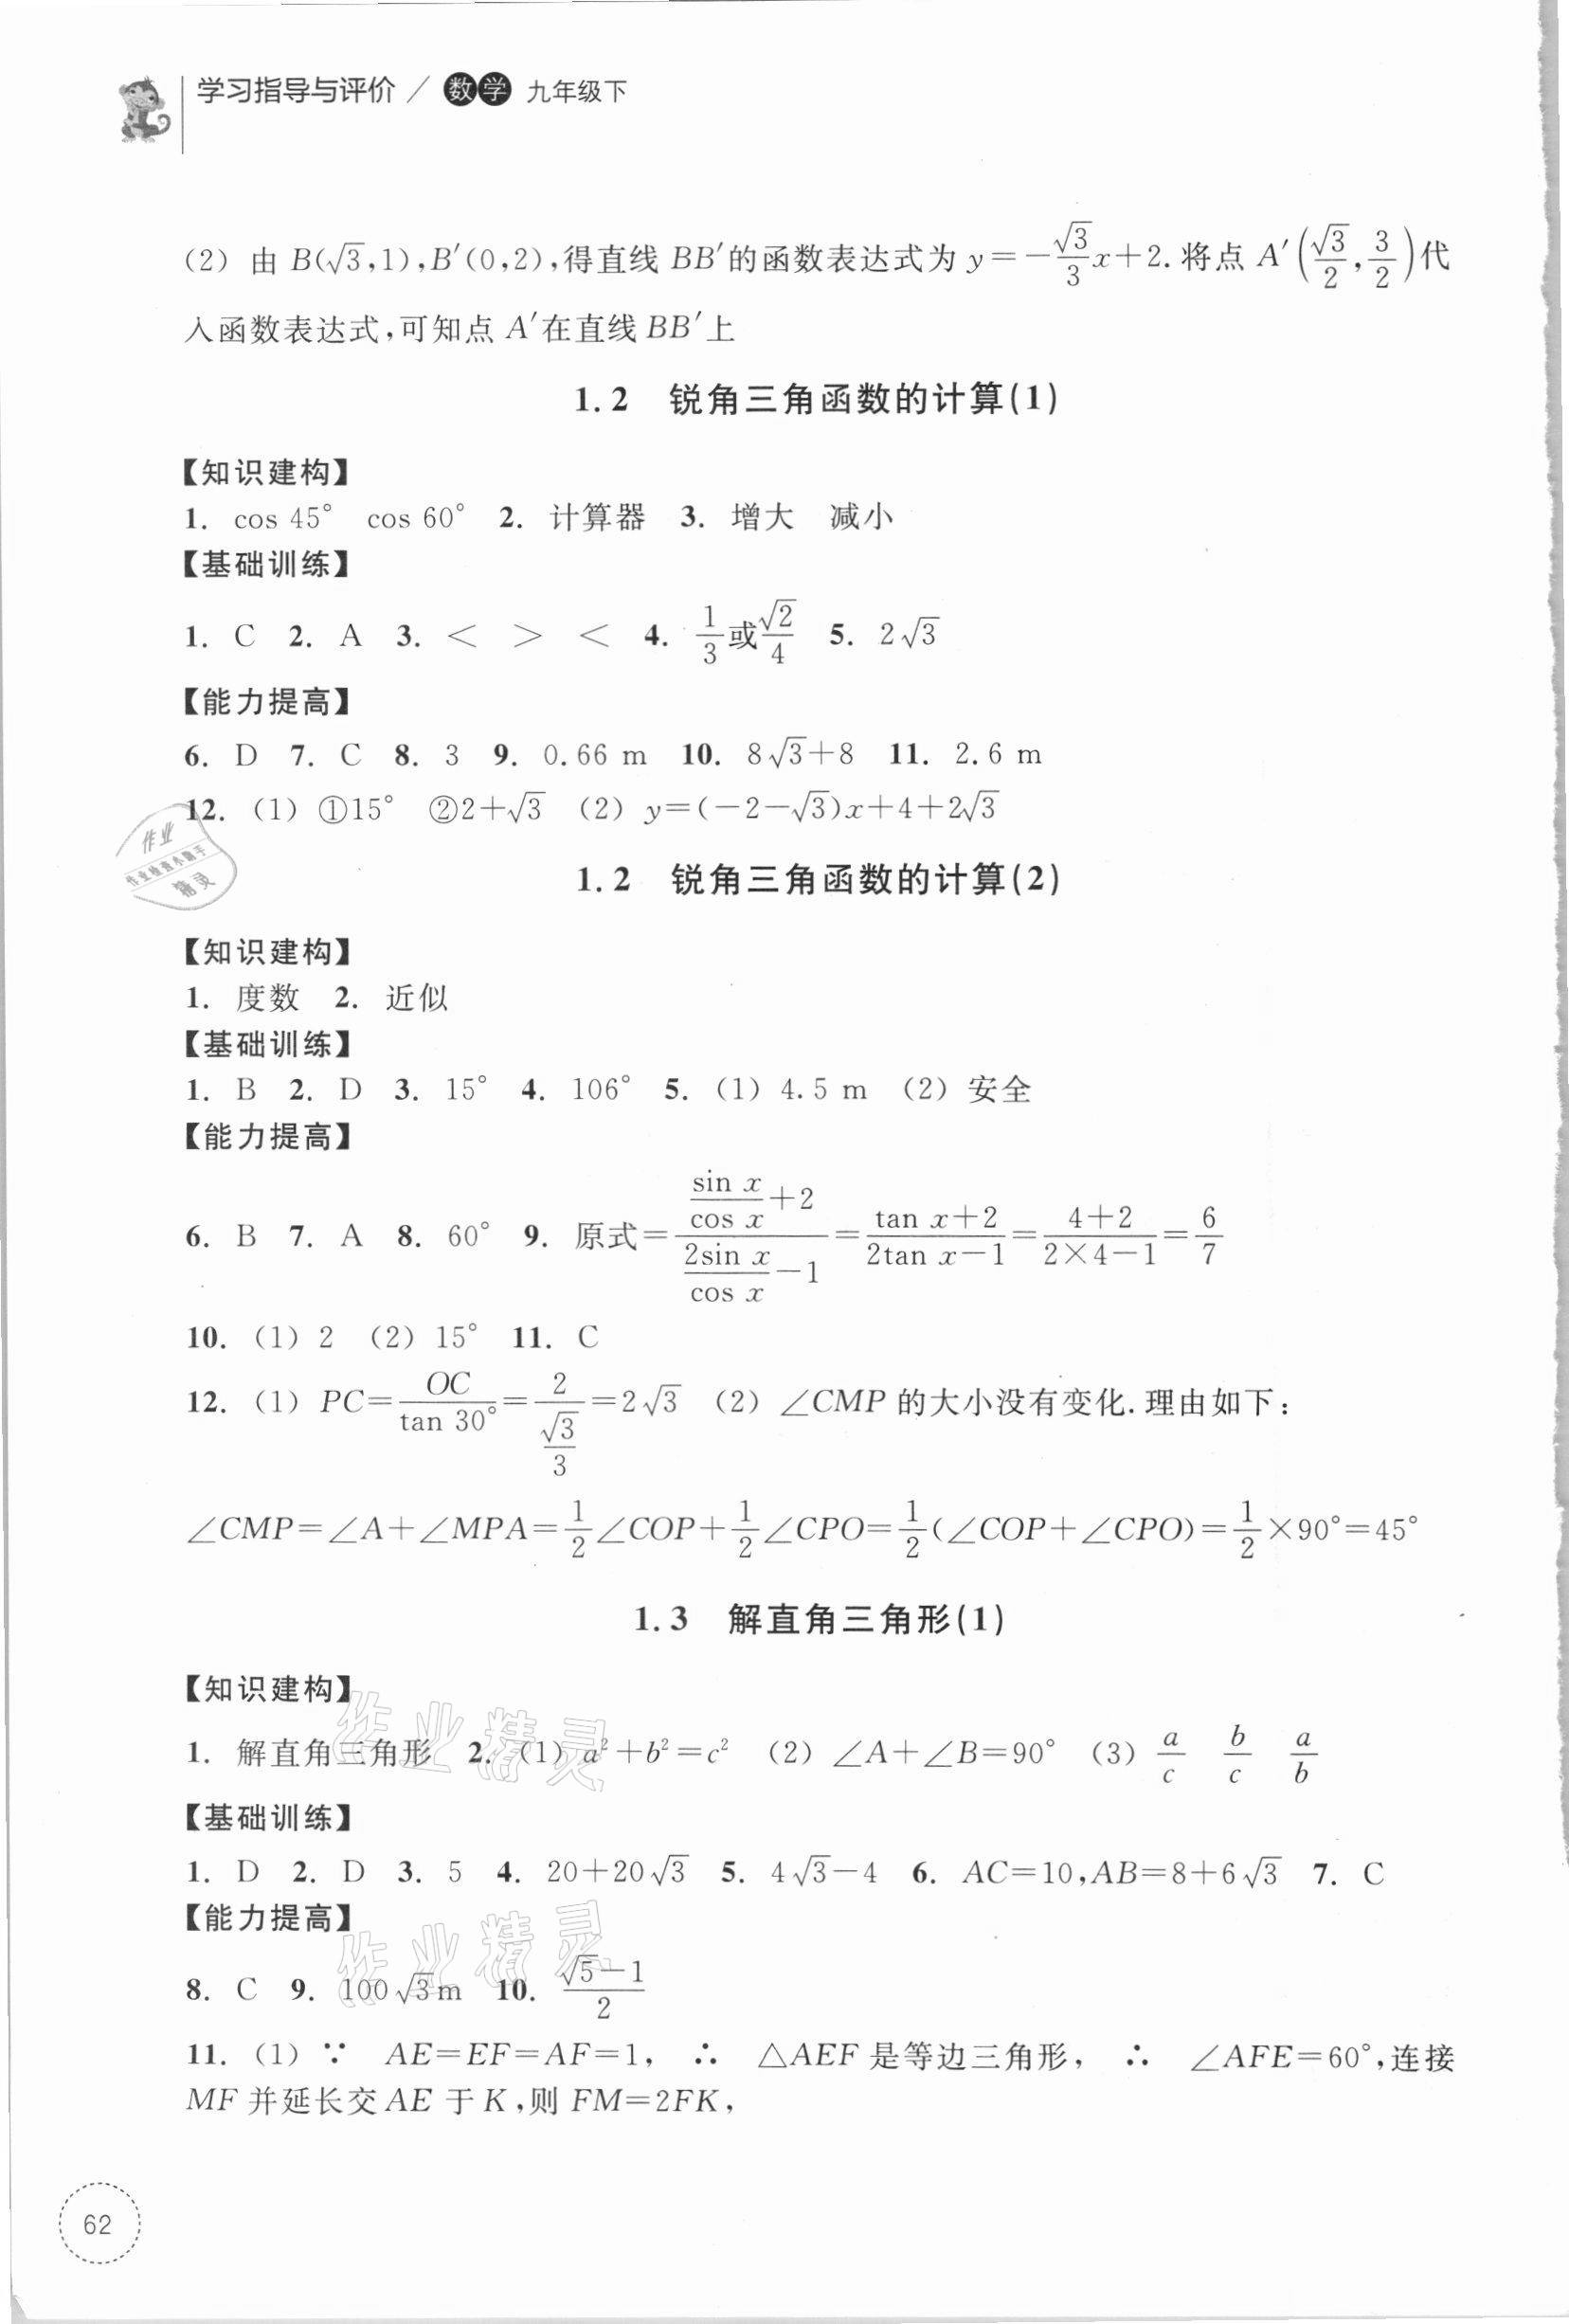 学习指导与评价 / 数学 九年级下
(2) 由 B(√3,1),B′(0,2),得直线 BB′的函数表达式为 y=-√3/3x+2.将点 A′(√3/2,3/2)代
入函数表达式,可知点 A′在直线 BB′上
1.2 锐角三角函数的计算(1)
【知识建构】
1. cos 45° cos 60° 2. 计算器 3. 增大 减小
【基础训练】
1. C 2. A 3. < > < 4. 1/3或√2/4 5. 2√3
【能力提高】
6. D 7. C 8. 3 9. 0.66 m 10. 8√3+8 11. 2.6 m
12. (1) ①15° ②2+√3 (2) y=(-2-√3)x+4+2√3
作业
作业检查小助手
精灵
1.2 锐角三角函数的计算(2)
【知识建构】
1. 度数 2. 近似
【基础训练】
1. B 2. D 3. 15° 4. 106° 5. (1) 4.5 m (2) 安全
【能力提高】
6. B 7. A 8. 60° 9. 原式=(sin x/cos x+2)/(2sin x/cos x-1)=(tan x+2)/(2tan x-1)=(4+2)/(2×4-1)=6/7
10. (1) 2 (2) 15° 11. C
12. (1) PC=OC/tan 30°=2/(√3/3)=2√3 (2) ∠CMP 的大小没有变化.理由如下:
∠CMP=∠A+∠MPA=1/2∠COP+1/2∠CPO=1/2(∠COP+∠CPO)=1/2×90°=45°
1.3 解直角三角形(1)
【知识建构】
1. 解直角三角形 2. (1) a²+b²=c² (2) ∠A+∠B=90° (3) a/c b/c a/b
作业精灵
【基础训练】
1. D 2. D 3. 5 4. 20+20√3 5. 4√3-4 6. AC=10,AB=8+6√3 7. C
【能力提高】
作业精灵
8. C 9. 100√3m 10. (√5-1)/2
11. (1) ∵ AE=EF=AF=1, ∴ △AEF 是等边三角形, ∴ ∠AFE=60°,连接
MF 并延长交 AE 于 K,则 FM=2FK,
62